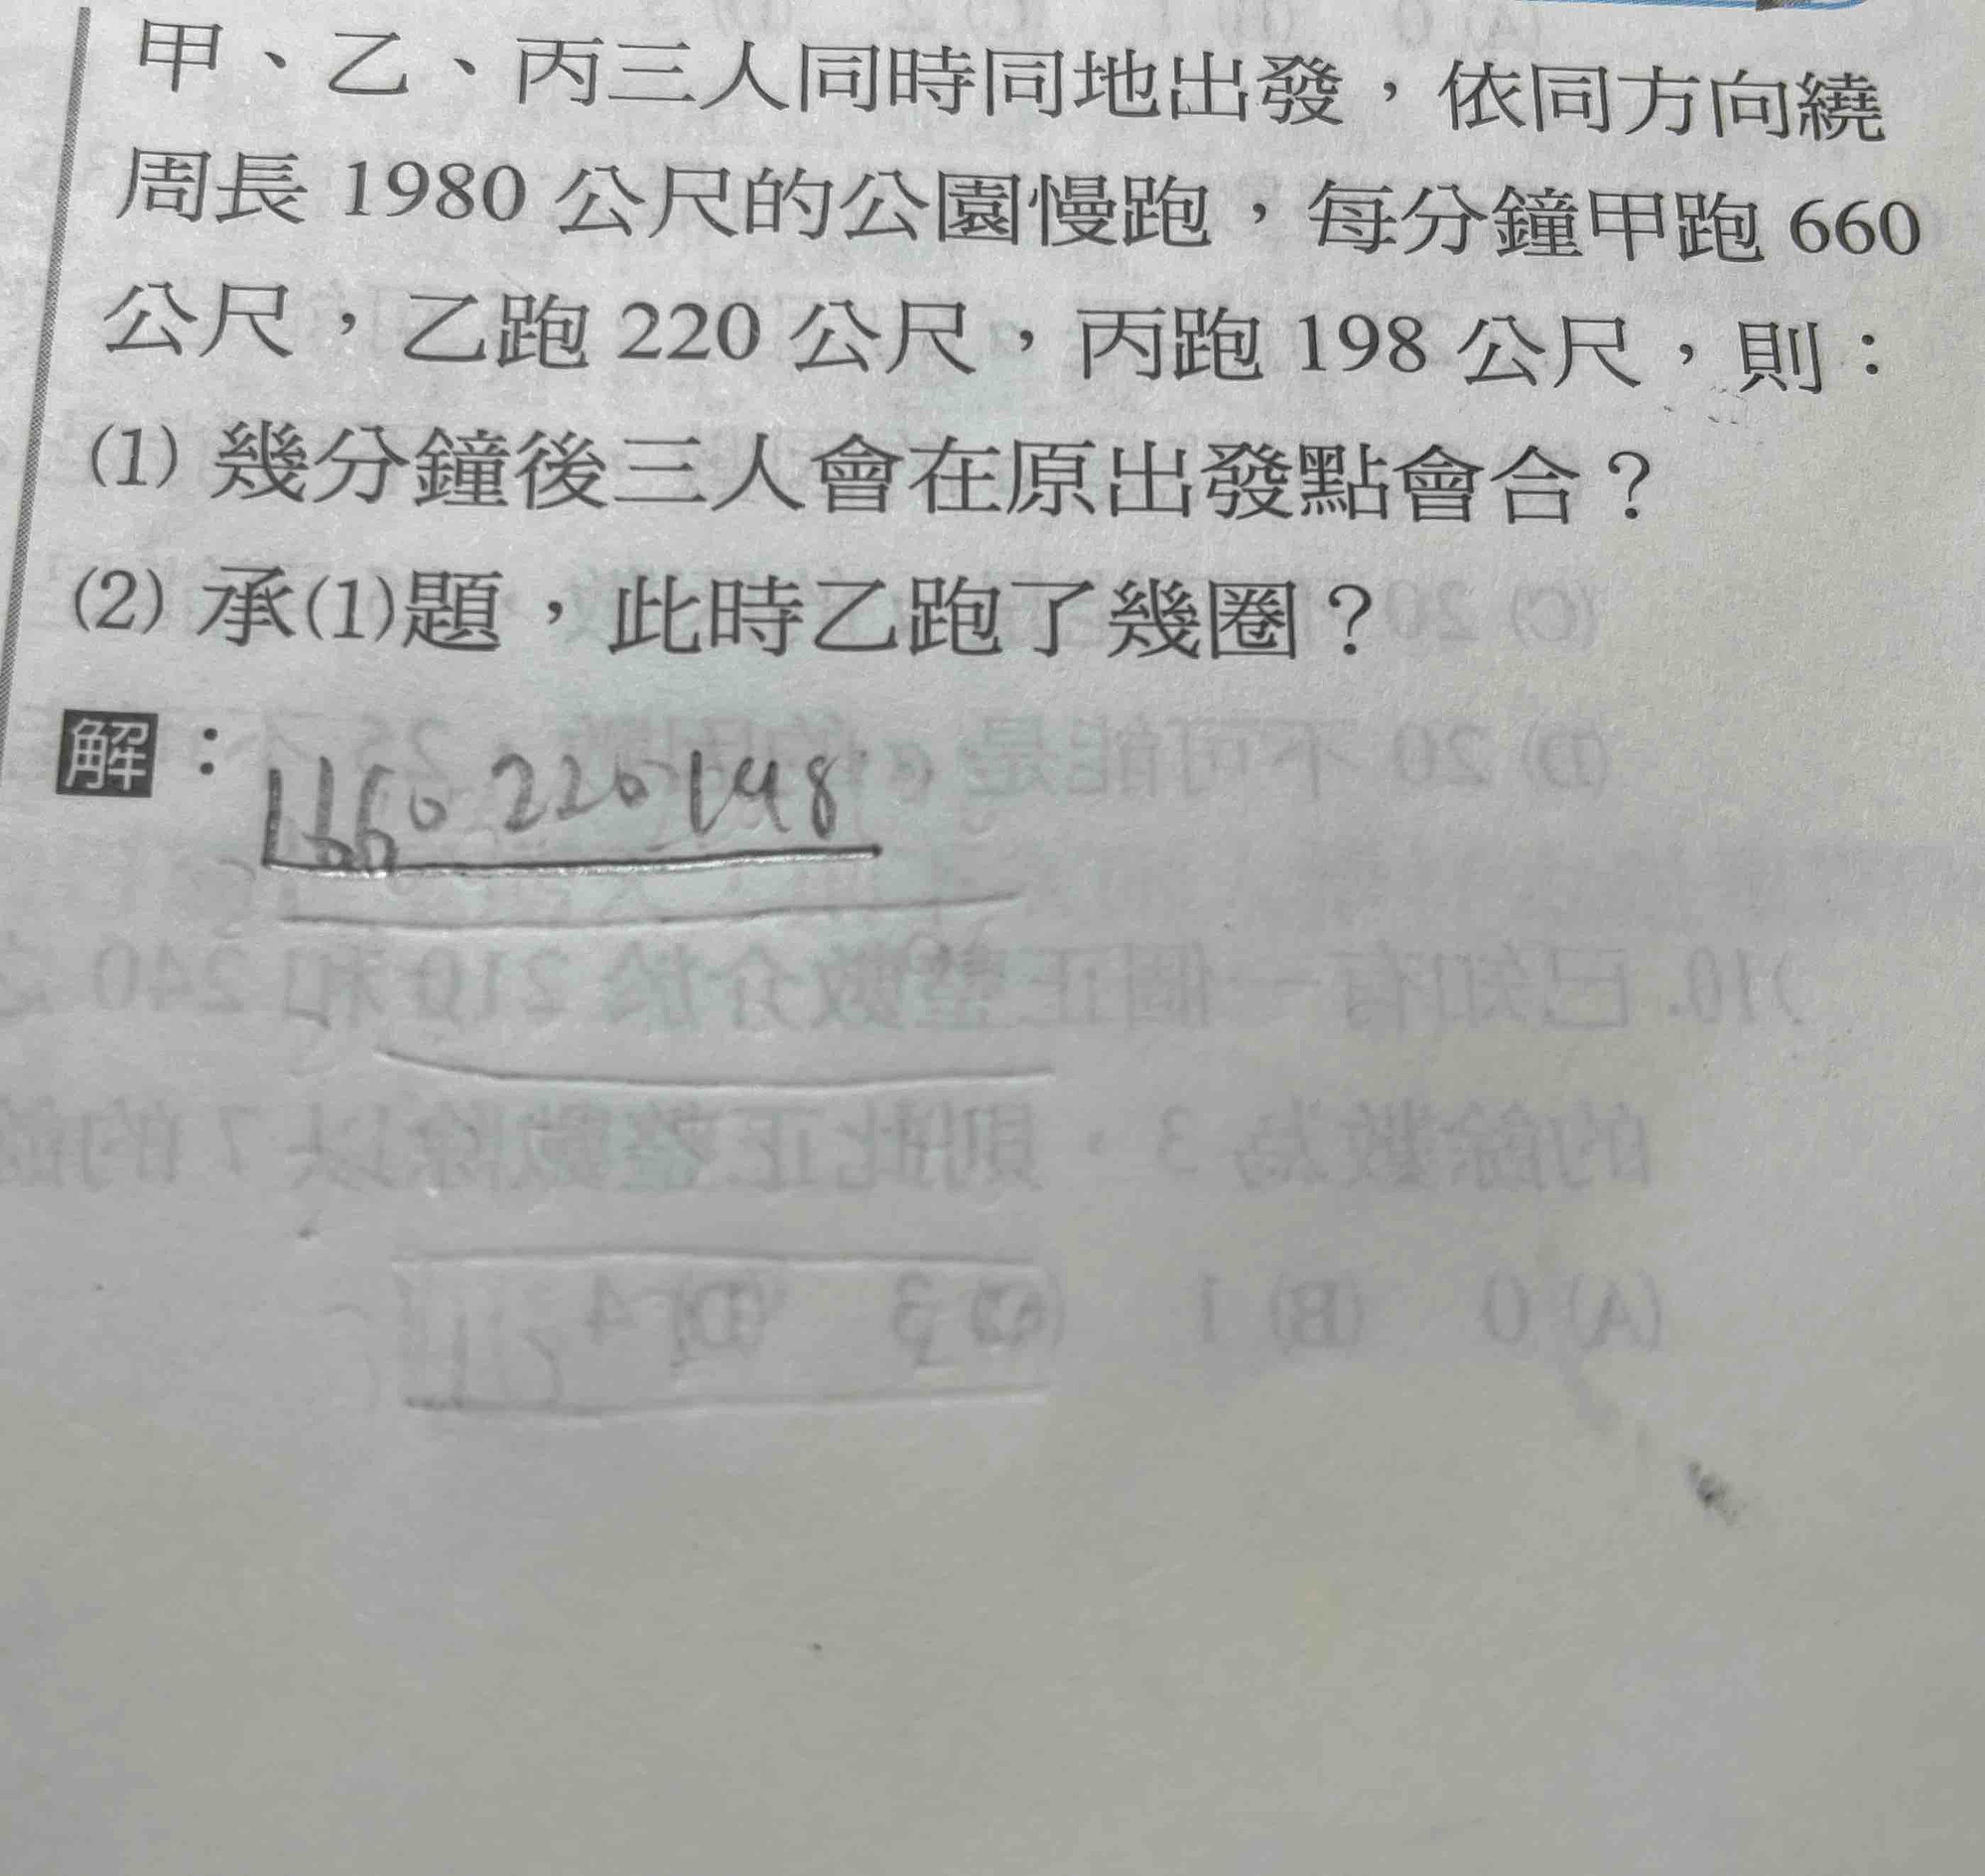 甲、乙、丙三人同時同地出發，依同方向繞
周長 1980 公尺的公園慢跑，每分鐘甲跑 660
公尺，乙跑 220 公尺，丙跑 198 公尺，則：
(1) 幾分鐘後三人會在原出發點會合？
(2) 承(1)題，此時乙跑了幾圈？
解：
660 220 198